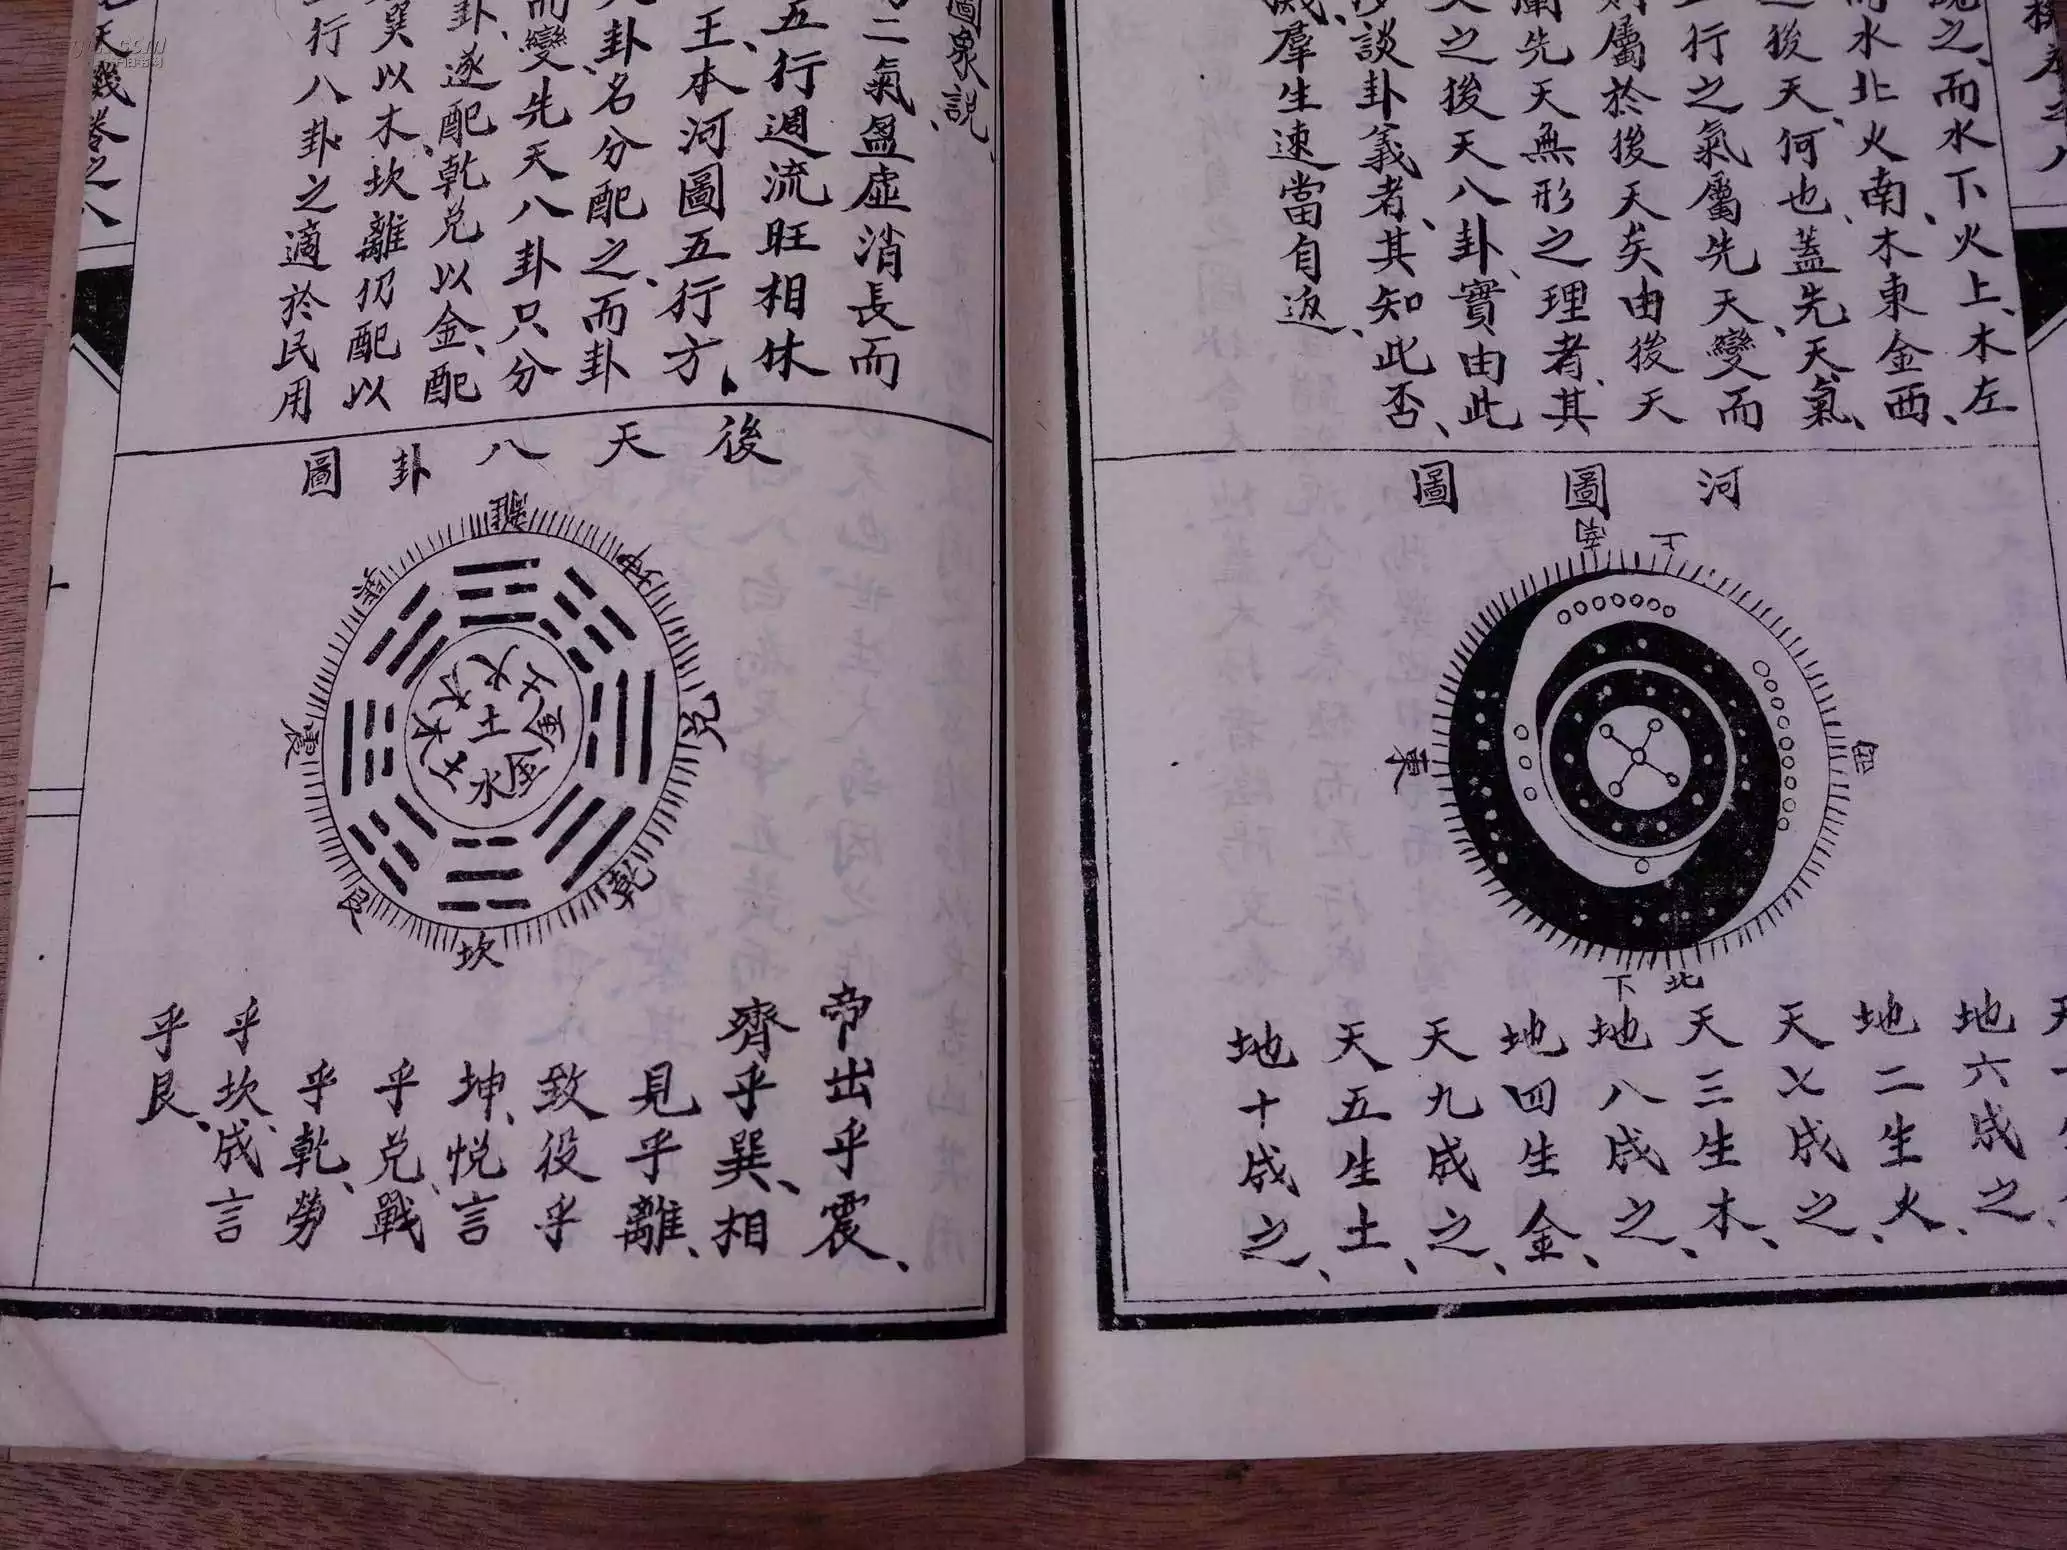 説之、而水下火上、木左
而水北火南、木東金西、
之後天、何也、蓋先天氣、
行之氣屬先天、變而
則屬於後天矣、由後天
闡先天無形之理者、其
天之後天八卦、實由此
談卦義者、其知此否、
羣生速當自返、
河圖圖
南
上
東
西
北
下
地六成之、
地二生火、
天七成之、
天三生木、
地八成之、
地四生金、
天九成之、
天五生土、
地十成之、
圖象説、
二氣盈虛消長而
五行週流旺相休
王、本河圖五行方、
八卦、名分配之、而卦
而變先天八卦只分
卦、遂配乾兌以金、配
巽以木、坎離仍配以
行八卦之適於民用
卷之八
後天八卦圖
離
坤
巽
兌
震
乾
艮
坎
火
木
土
木
土
金
金
土
水
帝出乎震、
齊乎巽、相
見乎離、
致役乎
坤、悅言
乎兌、戰
乎乾、勞
乎坎、成言
乎艮、